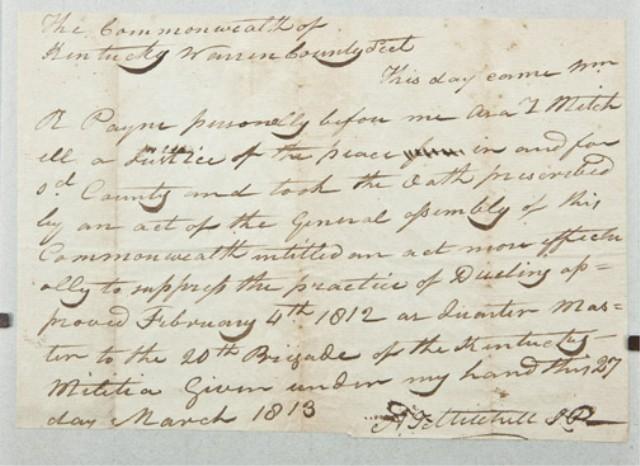 The Commonwealth of
Kentucky Warren County Sct
This day came Wm
R Payne personally before me Asa T Mitch
ell a Justice of the peace in and for
sd County and took the Oath prescribed
by an act of the General assembly of this
Commonwealth intitled an act more effectu
ally to suppress the practice of Dueling ap=
proved February 4th 1812 as Quarter Mas=
ter to the 20th Brigade of the Kentucky
Militia Given under my hand this 27
day March 1813
Mitchell J P